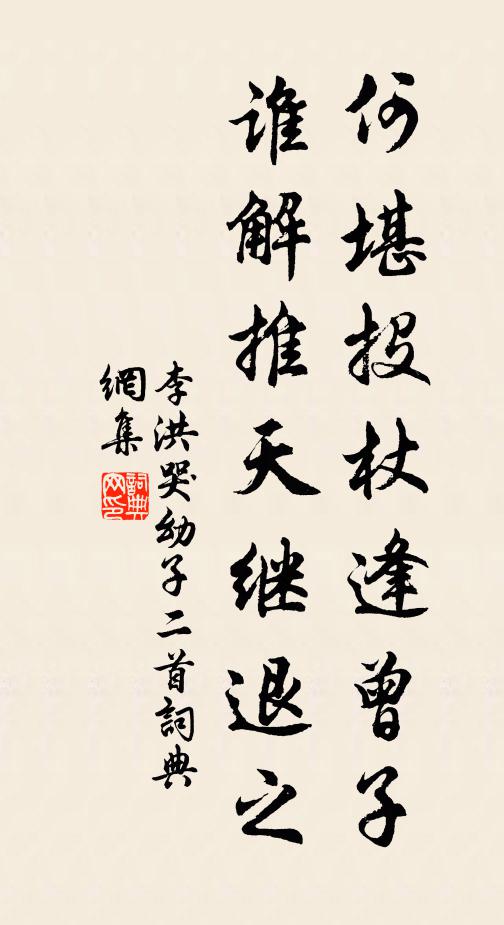 何堪投杖逢曾子
谁解推天继退之
李洪哭幼子二首詞典
網集
詞典
网印